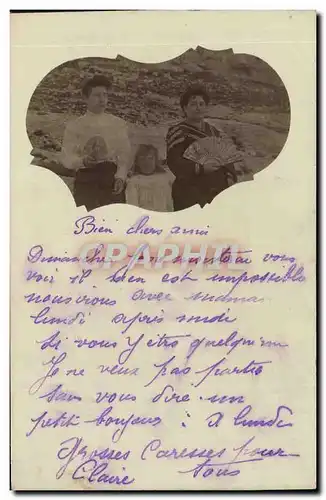 Bien chers amis
Dimanche vous
voir il bien est impossible
nous irons avec
lundi après midi
si vous y êtes quelqu'un
Je ne veux pas partir
sans vous dire un
petit bonjour : a lundi
Grosses Caresses pour
Claire tous